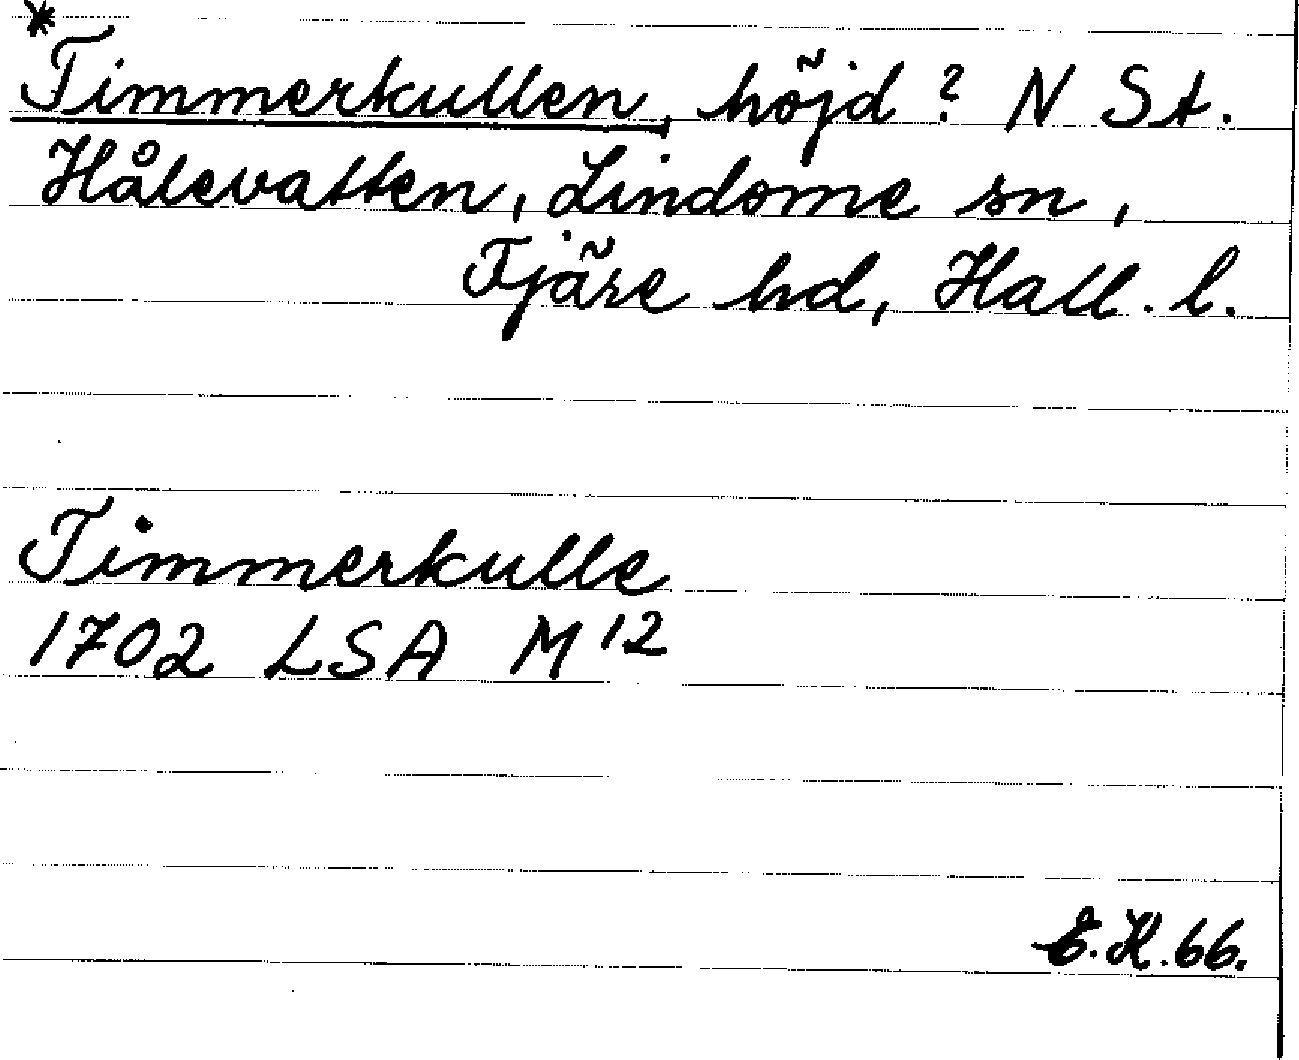 *
Timmerkullen, höjd? N St.
Hålevatten, Lindome sn,
Fjäre hd, Hall. l.
Timmerkulle
1702 LSA M12
E.H.66.